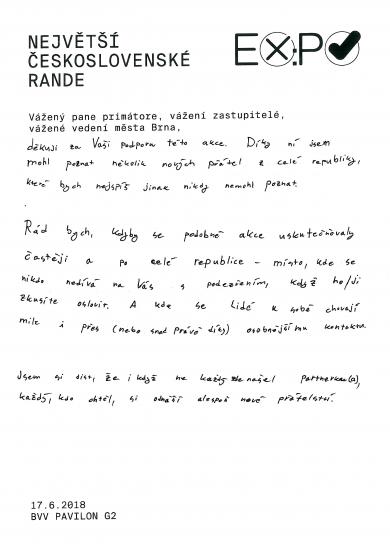 NEJVĚTŠÍ
ČESKOSLOVENSKÉ
RANDE
EXPO
Vážený pane primátore, vážení zastupitelé,
vážené vedení města Brna,
děkuji za Vaši podporu této akce. Díky ní jsem
mohl poznat několik nových přátel z celé republiky,
které bych nejspíš jinak nikdy nemohl poznat.
Rád bych, kdyby se podobné akce uskutečňovaly
častěji a po celé republice - místo, kde se
nikdo nedívá na Vás s podezřením, když ho/ji
zkusíte oslovit. A kde se lidé k sobě chovají
mile i přes (nebo snad právě díky) osobnějšímu kontaktu.
Jsem si jist, že i když ne každý zde našel partnerku(a),
každý, kdo chtěl, si odnáší alespoň nové přátelství.
17.6.2018
BVV PAVILON G2